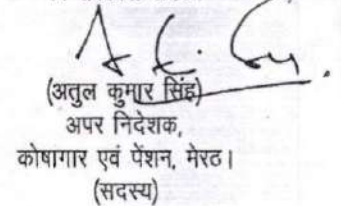 (अतुल कुमार सिंह)
अपर निदेशक,
कोषागार एवं पेंशन, मेरठ।
(सदस्य)